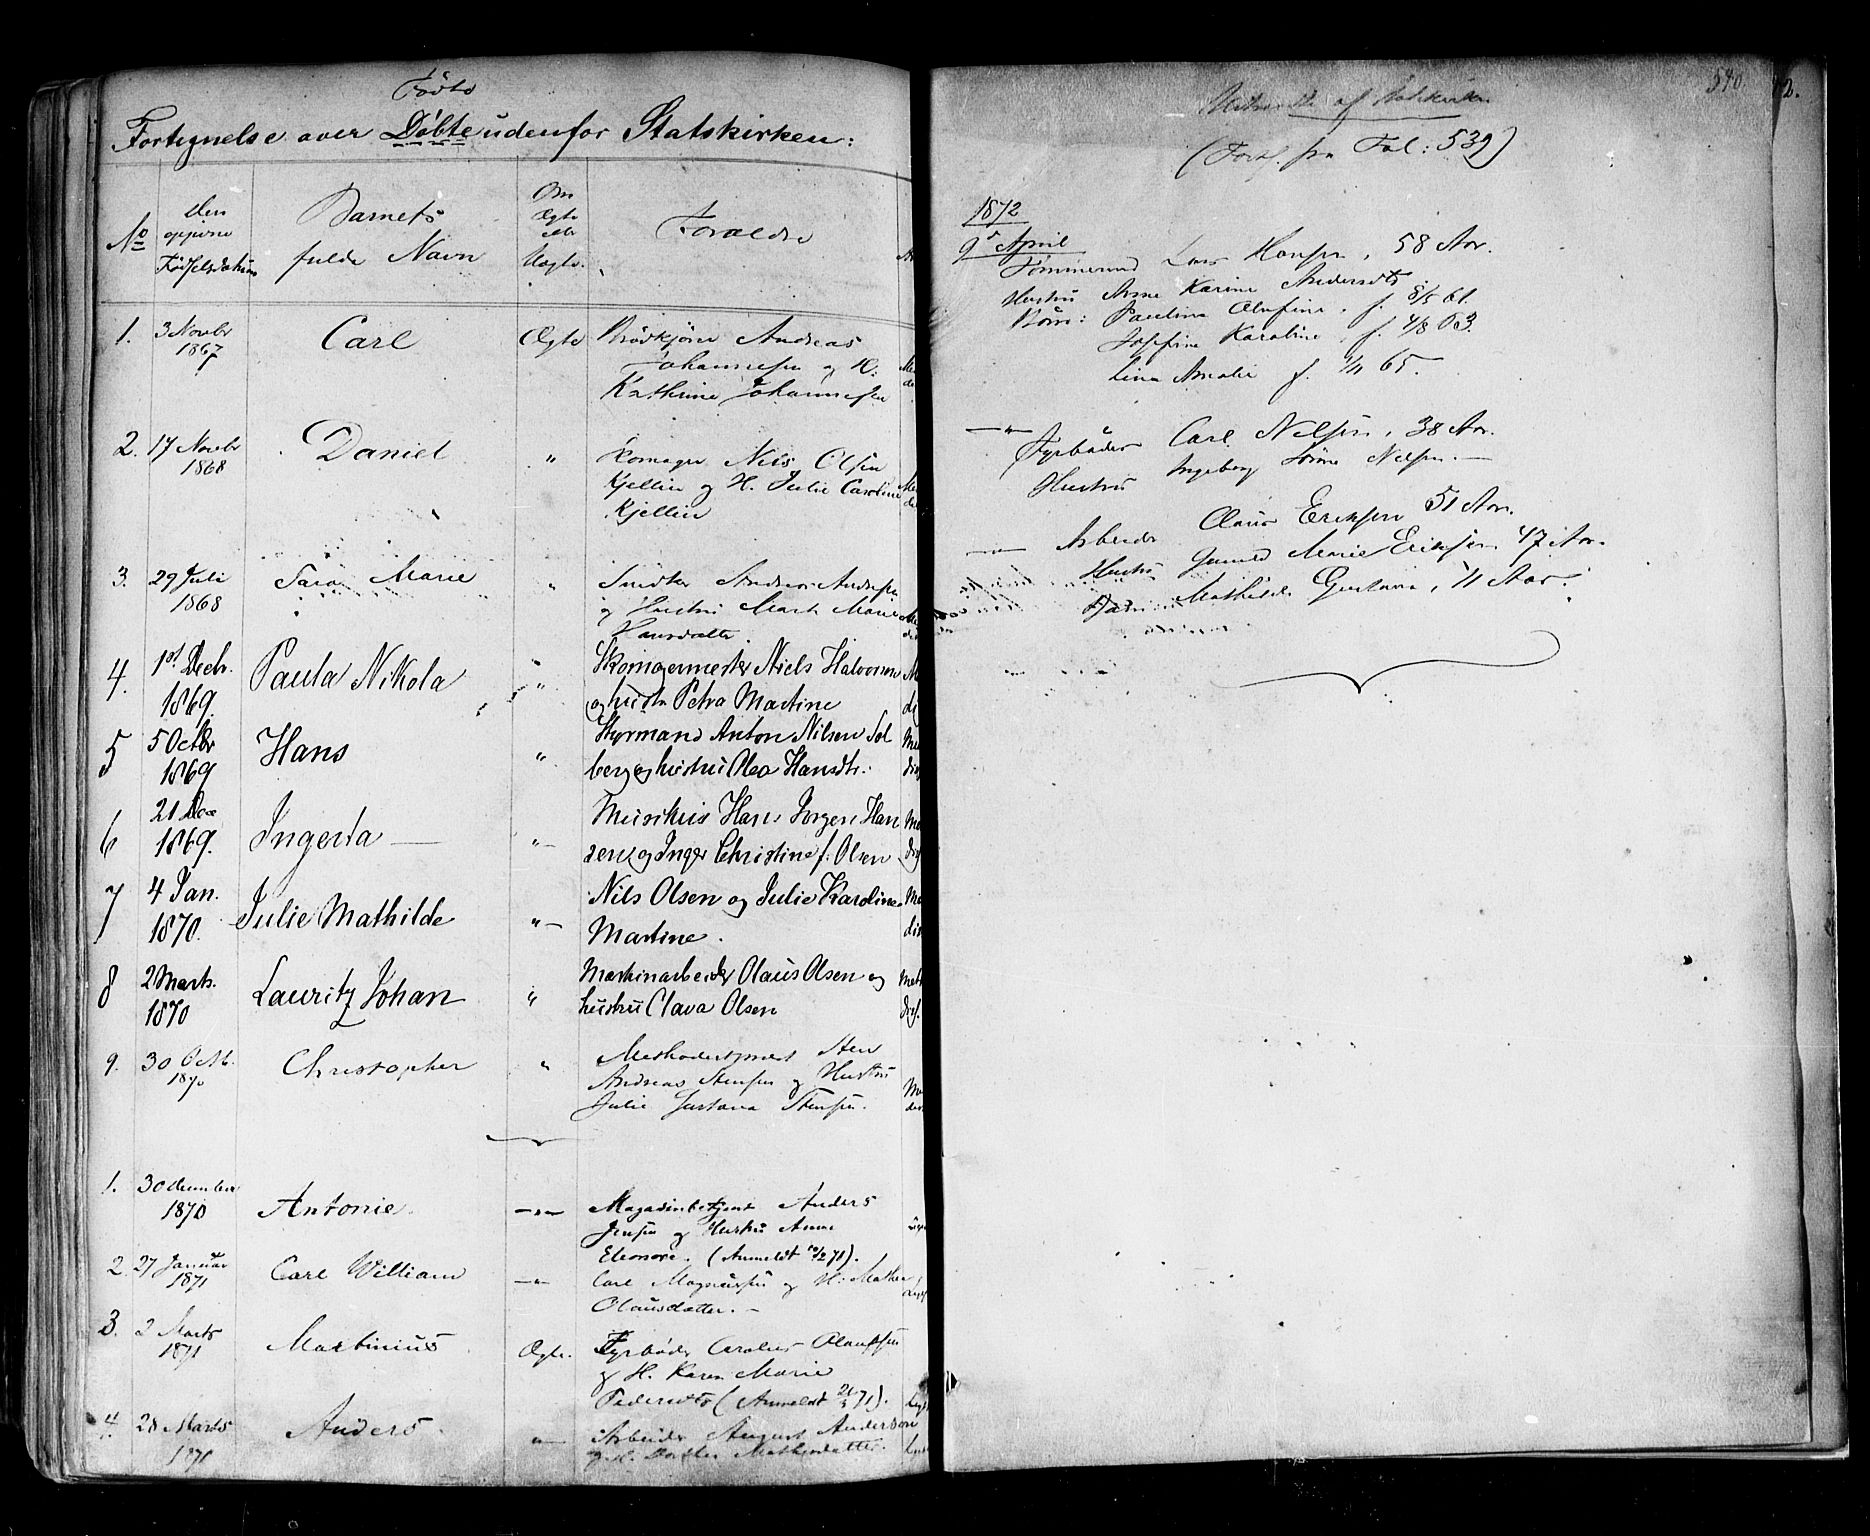 Fødte
Fortegnelse over Døbte udenfor Statskirken:
No
Den opgivne Fødselsdatum
Barnets fulde Navn
Om Ægte eller Uægte.
Forældre
1. 3 Novbr 1867 Carl Ægte Andreas
Johannesen og H:
Kathrine Johannesen
2. 17 Novbr 1868 Daniel " Skomager Nils Olsen
Kjellin og H. Julie Caroline
Kjellin
3. 29 Juli 1868 Sara Marie " Smed Andreas Andersen
og Hustru Marte Marie
Hansdatter.
4. 1st Decbr. 1869. Paula Nikola " Skomagermester Niels Halvorsen
og hustru Petra Martine
5 5 Octbr 1869 Hans " Styrmand Anton Nilsen Sol
berg og hustru Olea Hansdtr.
6 21 Dec 1869. Ingerda " Musikus Hans Jørgen Han
sen og Inger Christine f. Olsen
7 4 Jan. 1870. Julie Mathilde " Nils Olsen og Julie Karoline
Martine.
8 2 Marts. 1870 Lauritz Johan " Maskinarbeider Olaus Olsen og
hustru Clara Olsen
9. 30 Octb. 1870 Christopher " Methodistpræst Hr
Andreas Stensen og Hustru
Julie Gustava Stensen.
1. 30 december 1870 Antonie. — " — Magasinbetjent Anders
Jensen og Hustru Anne
Eleonore. (Anmeldt 10/2 71).
2. 27 Januar 1871 Carl William — " — Carl Magnussen og H: Mathea
Olausdatter. —
3. 2 Marts 1871 Martinius Ægte. Fyrbøder Carolius Olaussen
og H. Karen Marie
Pedersdtr (Anmeldt 21/3 71).
4. 28 Marts 1871 Anders. — " — Arbeider August Anderson
og H. Dorthea Mathisdatter.
540
2.
af Statskirken
(Forts. fra Fol: 539)
1872
9de April
Tømmermd Lars Hansen, 58 Aar.
Hustru Anne Karine Andersdtr
Børn: Pauline Olufine, f. 8/5 61.
Josefine Karoline, f. 4/8 63.
Lina Amalie f. 1/11 65.
— " — Fyrbøder Carl Nilsen, 38 Aar.
Hustru Ingeborg Nilsen. —
— " — Arbeider Olaus Eriksen 51 Aar.
Hustru Gunild Marie Eriksen 47 Aar.
Mathilde Gustava, 11 Aar.